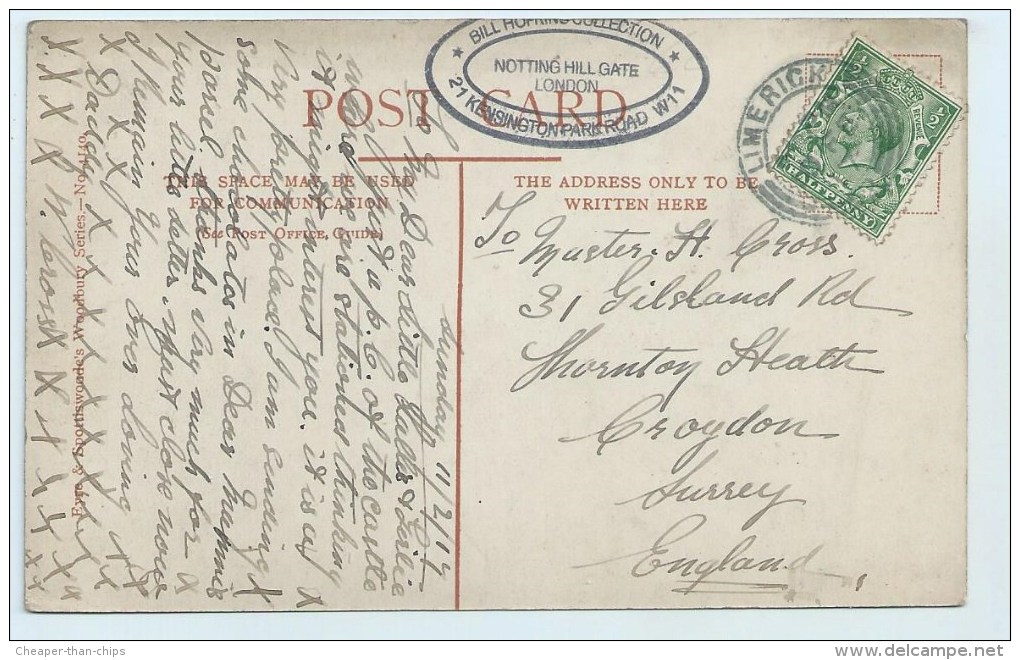 BILL HOPKINS COLLECTION
NOTTING HILL GATE
LONDON
21 KENSINGTON PARK ROAD W11
LIMERICK
½ ½
HALFPENNY
POST CARD
THIS SPACE MAY BE USED
FOR COMMUNICATION
(See Post Office Guide)
THE ADDRESS ONLY TO BE
WRITTEN HERE
To
Master. H. Cross.
31 Gilsland Rd
Thornton Heath
Croydon
Surrey
England
Sunday 11/2/
To My Dear Little Leslie
a p.c. of the Castle
where we are stationed thinking
it might interest you. it is a
very pretty place. I am sending
some chocolates in Dear Mummie's
parcel thanks very much for
your little letter. Must close now
I Remain Your Ever Loving
Daddy
X X X X X X X X X X
Eyre & Spottiswoode's Woodbury Series.—No. 4140
Cheaper-than-chips
www.delcampe.net